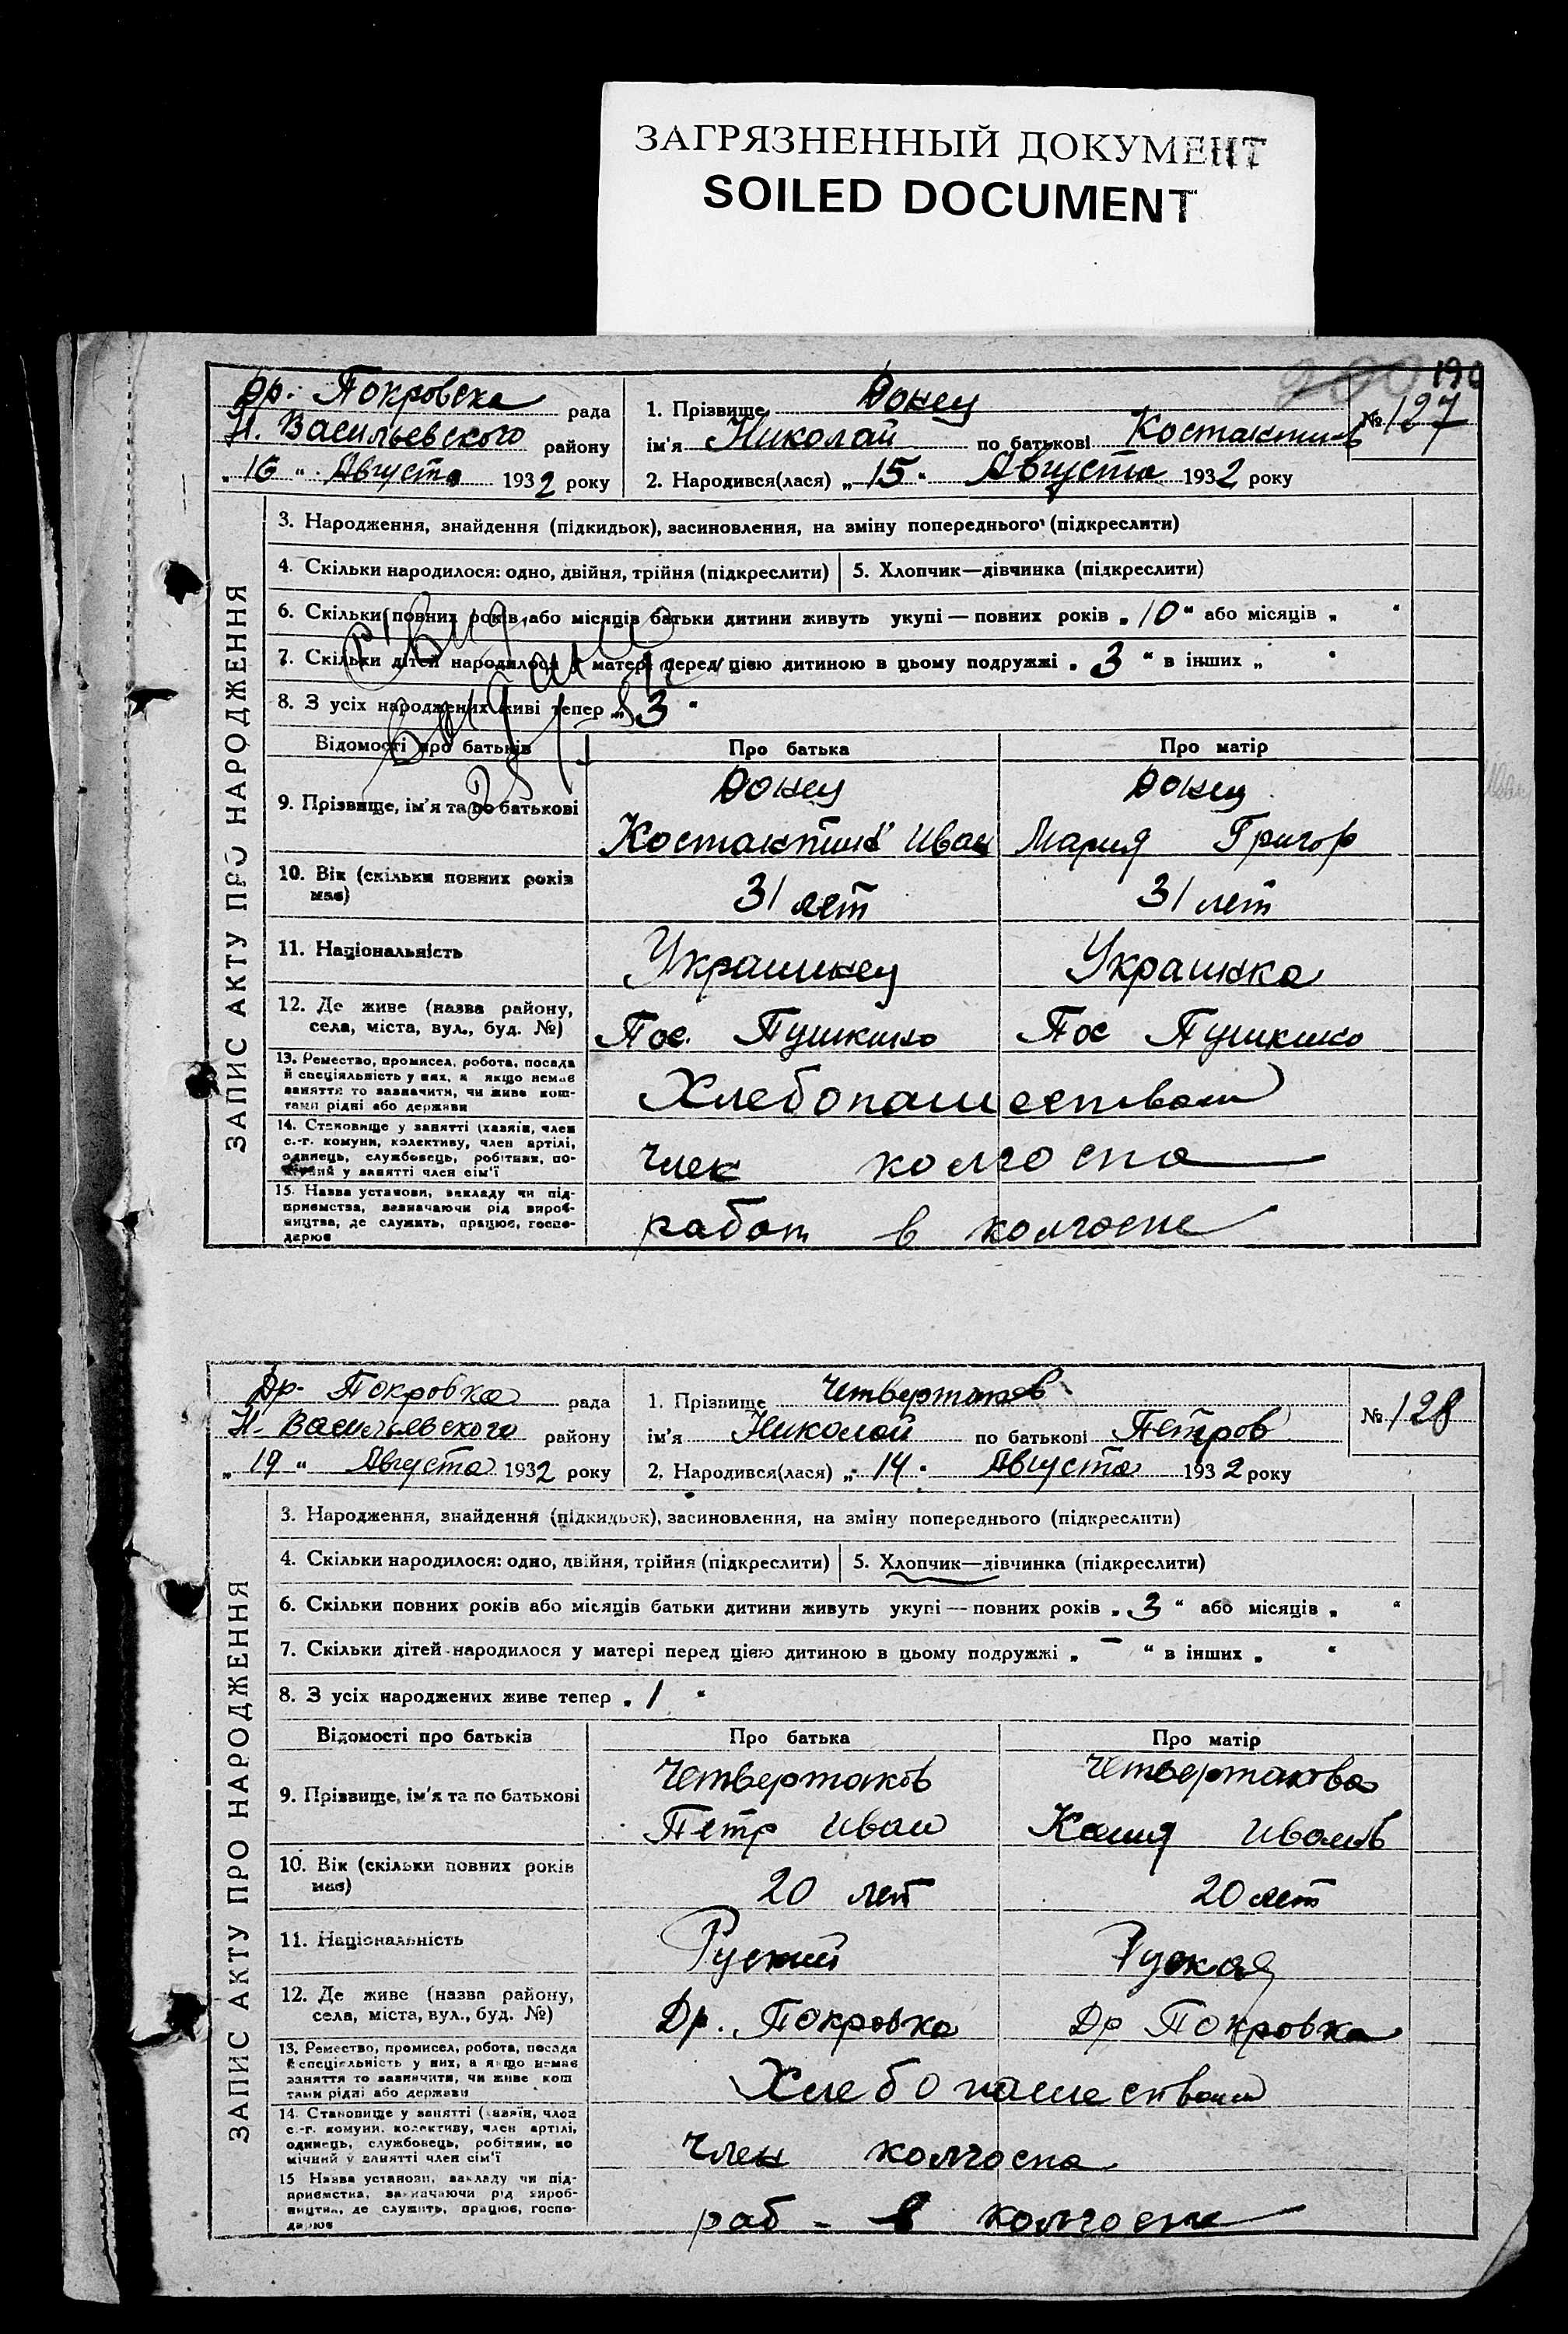 ЗАГРЯЗНЕННЫЙ ДОКУМЕНТ
SOILED DOCUMENT
200 190
Др. Покровска рада
Н. Васильевского району
„16“ Августа 1932 року
1. Прізвище Донец
ім'я Николай по батькові Костантинов
№ 127
2. Народився(лася) „15“ Августа 1932 року
ЗАПИС АКТУ ПРО НАРОДЖЕННЯ
3. Народження, знайдення (підкидьок), засиновлення, на зміну попереднього (підкреслити)
4. Скільки народилося: одно, двійня, трійня (підкреслити) 5. Хлопчик—дівчинка (підкреслити)
6. Скільки повних років або місяців батьки дитини живуть укупі — повних років „10“ або місяців „ “
7. Скільки дітей народилося у матері перед цією дитиною в цьому подружжі „3“ в інших „ “
8. З усіх народжених живі тепер „3“
Відомості про батьків Про батька Про матір
9. Прізвище, ім'я та по батькові
Донец Донец
Костантин Иван Мария Григор
10. Вік (скільки повних років має)
31 лет 31 лет
11. Національність
Украинец Украинка
12. Де живе (назва району, села, міста, вул., буд. №)
Пос. Пушкино Пос Пушкино
13. Ремество, промисел, робота, посада
й спеціяльність у них, а якщо немає
заняття то зазначити, чи живе кош-
тами рідні або держави
Хлебопашеством
14. Становище у занятті (хазяїн, член
с.-г. комуни, колективу, член артілі,
одинець, службовець, робітник, по-
мічний у занятті член сім'ї
член колгоспа
15. Назва установи, закладу чи під-
приємства, зазначаючи рід вироб-
ництва, де служить, працює, госпо-
дарює
работ в колгоспе
Др. Покровка рада
Н. Васильевского району
„19“ Августа 1932 року
1. Прізвище Четвертаков
ім'я Николай по батькові Петров
№ 128
2. Народився(лася) „14“ Августа 1932 року
ЗАПИС АКТУ ПРО НАРОДЖЕННЯ
3. Народження, знайдення (підкидьок), засиновлення, на зміну попереднього (підкреслити)
4. Скільки народилося: одно, двійня, трійня (підкреслити) 5. Хлопчик—дівчинка (підкреслити)
6. Скільки повних років або місяців батьки дитини живуть укупі — повних років „3“ або місяців „ “
7. Скільки дітей народилося у матері перед цією дитиною в цьому подружжі „–“ в інших „ “
8. З усіх народжених живе тепер „1“
Відомості про батьків Про батька Про матір
9. Прізвище, ім'я та по батькові
Четвертаков Четвертакова
Петр Иван Ивановн
10. Вік (скільки повних років має)
20 лет 20 лет
11. Національність
Руский Руская
12. Де живе (назва району, села, міста, вул., буд. №)
Др. Покровка Др Покровка
13. Ремество, промисел, робота, посада
й спеціяльність у них, а якщо немає
заняття то зазначити, чи живе кош
тами рідні або держави
Хлебопашеством
14. Становище у занятті (хазяїн, член
с.-г. комуни, колективу, член артілі,
одинець, службовець, робітник, по
мічний у занятті член сім'ї
член колгоспа
15 Назва установи, закладу чи під-
приємства, зазначаючи рід вироб-
ництва, де служить, працює, госпо-
дарює
раб - в колгоспе